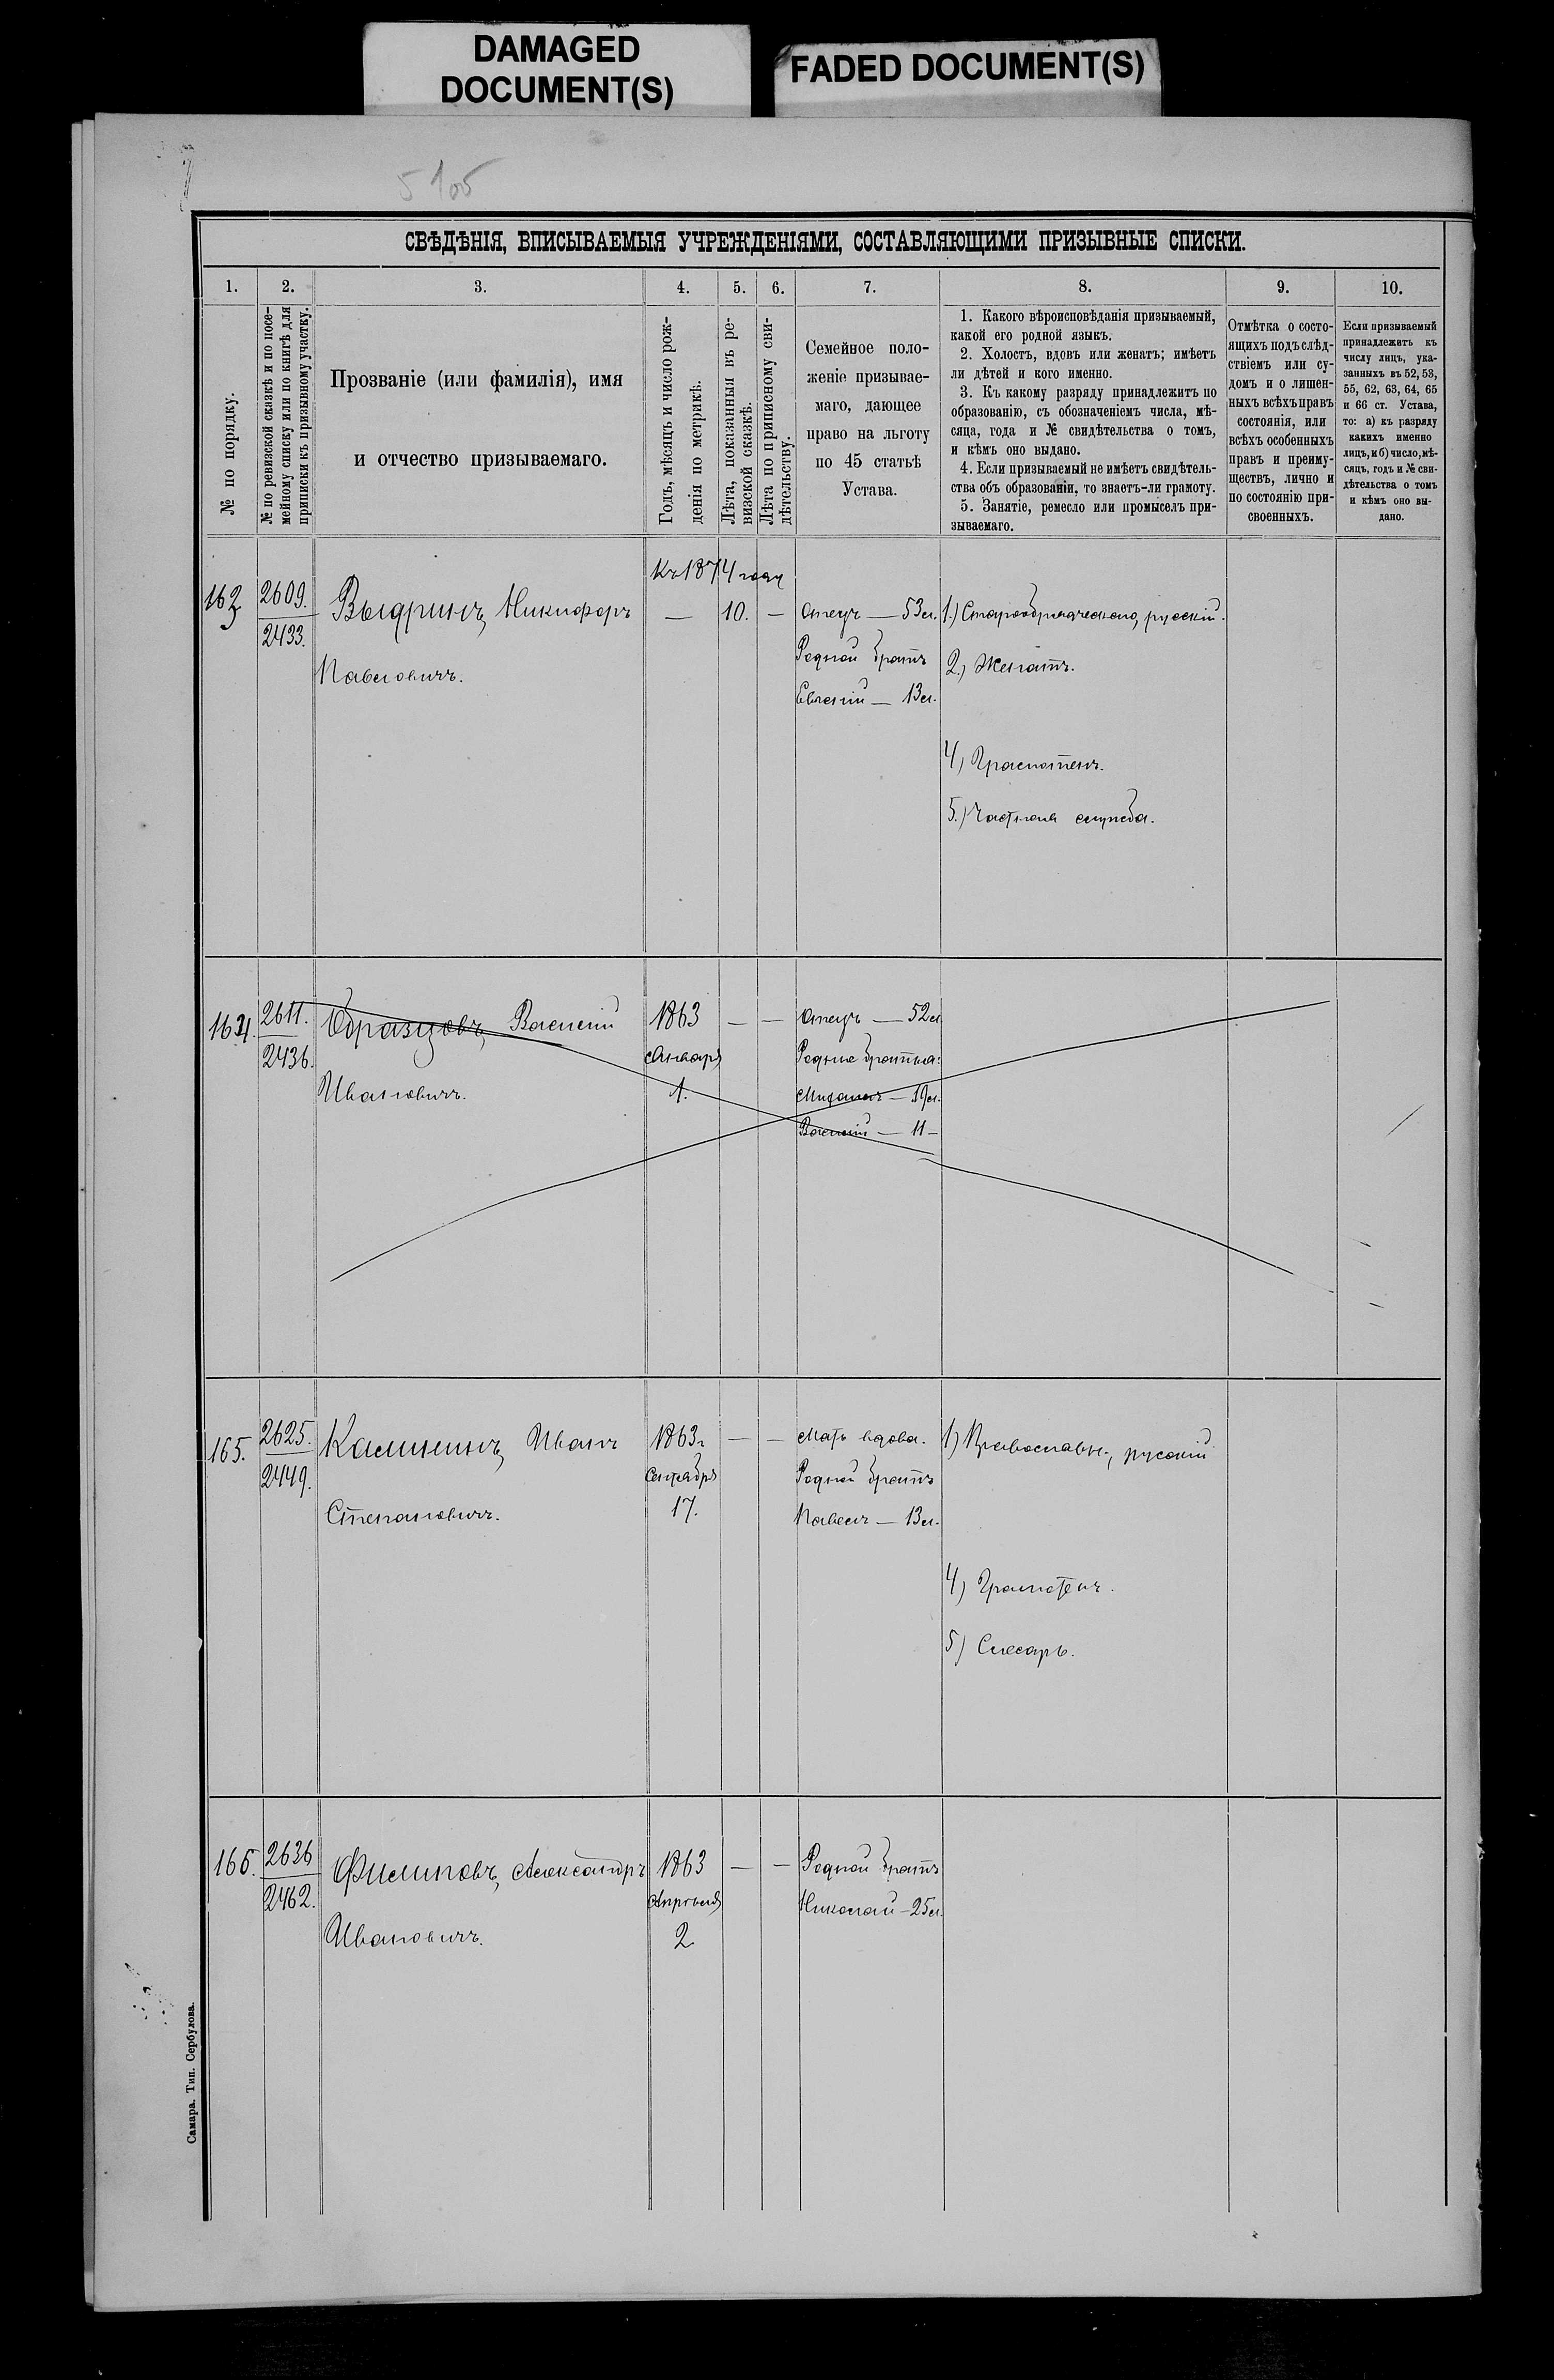 DAMAGED
DOCUMENT(S)
FADED DOCUMENT(S)
5105
СВѢДѢНІЯ, ВПИСЫВАЕМЫЯ УЧРЕЖДЕНІЯМИ, СОСТАВЛЯЮЩИМИ ПРИЗЫВНЫЕ СПИСКИ.
1. 2. 3. 4. 5. 6. 7. 8. 9. 10.
№ по порядку.
№ по ревизской сказкѣ и по посе-
мейному списку или по книгѣ для
приписки къ призывному участку.
Прозваніе (или фамилія), имя
и отчество призываемаго.
Годъ, мѣсяцъ и число рож-
денія по метрикѣ.
Лѣта, показанныя въ ре-
визской сказкѣ.
Лѣта по приписному сви-
дѣтельству.
Семейное поло-
женіе призывае-
маго, дающее
право на льготу
по 45 статьѣ
Устава.
1. Какого вѣроисповѣданія призываемый,
какой его родной языкъ.
2. Холостъ, вдовъ или женатъ; имѣетъ
ли дѣтей и кого именно.
3. Къ какому разряду принадлежитъ по
образованію, съ обозначеніемъ числа, мѣ-
сяца, года и № свидѣтельства о томъ,
и кѣмъ оно выдано.
4. Если призываемый не имѣетъ свидѣтель-
ства объ образованіи, то знаетъ-ли грамоту.
5. Занятіе, ремесло или промыселъ при-
зываемаго.
Отмѣтка о состо-
ящихъ подъ слѣд-
ствіемъ или су-
домъ и о лишен-
ныхъ всѣхъ правъ
состоянія, или
всѣхъ особенныхъ
правъ и преиму-
ществъ, лично и
по состоянію при-
своенныхъ.
Если призываемый
принадлежитъ къ
числу лицъ, ука-
занныхъ въ 52, 53,
55, 62, 63, 64, 65
и 66 ст. Устава,
то: а) къ разряду
какихъ именно
лицъ, и б) число, мѣ-
сяцъ, годъ и № сви-
дѣтельства о томъ
и кѣмъ оно вы-
дано.
Къ 1874 году
163 2609. Выдринъ, Никифоръ — 10. — Отецъ — 53 л. 1.) Старообрядческаго, русскій.
2433. Родной братъ
Павловичъ. 2.) Женатъ.
Евгеній — 13 л.
4) Грамотенъ.
5.) Частная служба.
164. 2611. Образцовъ, Василій 1863 — — Отецъ — 52 л.
2436. Января Родные братья:
Ивановичъ. 1. — 19 л.
Василій — 11 —
165. 2625. Калининъ, Иванъ 1863 г. — — Мать вдова. 1) Православн., русскій
2449. Сентября Родной братъ
Степановичъ. 17. Павелъ — 13 л.
4) Грамотенъ.
5) Слесарь.
166. 2636 Филиповъ, Александръ 1863 — — Родной братъ
2462. Апрѣля Николай — 25 л.
Ивановичъ. 2
Самара. Тип. Сербулова.